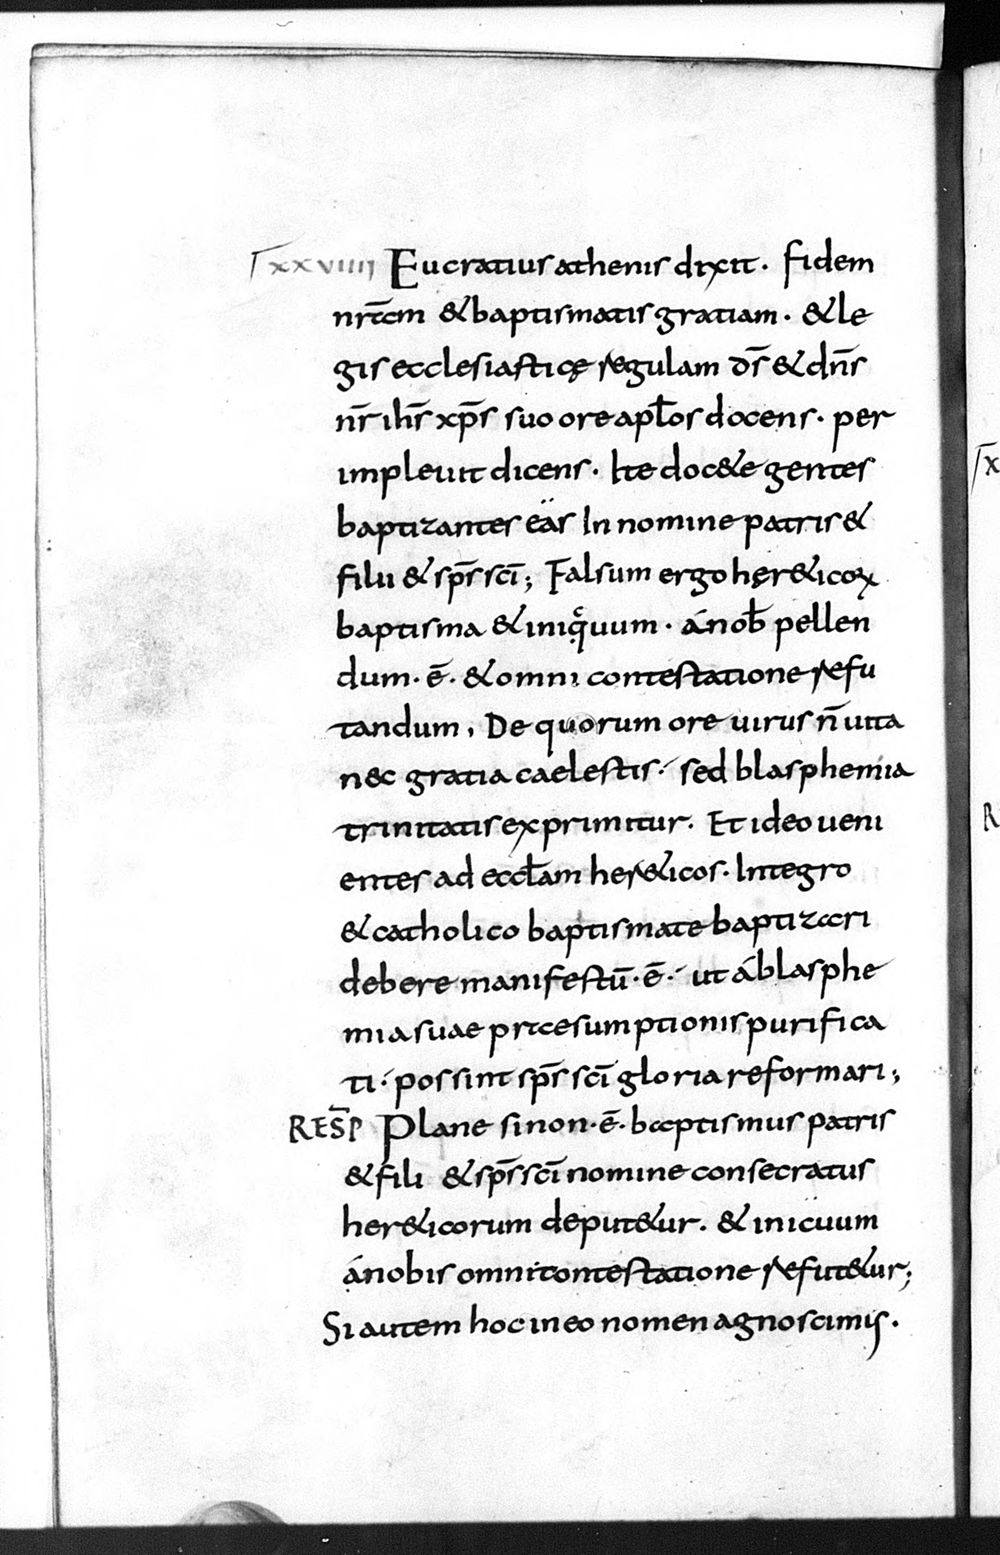 xxviiii Eucratius athenis dixit. fidem
nr̅am & baptismatis gratiam. & le
gis ecclesiasticę regulam ds̅ & dn̅s
nr̅ ihs̅ xps̅ suo ore apl̅os docens. per
impleuit dicens. Ite doc&e gentes
baptizantes eas In nomine patris &
filii & sps̅ sci̅; Falsum ergo hęr&icoꝝ
baptisma & iniquuum. á nob̅ pellen
dum. e̅. & omni contestatione refu
tandum, De quorum ore uirus n̅ uita
nec gratia caelestis. sed blasphemia
trinitatis exprimitur. Et ideo ueni
entes ad eccl̅am her&icos. Integro
& catholico baptismate baptizari
debere manifestu̅. e̅. ut á blasphe
mia suae praesumptionis purifica
ti. possint sps̅ sci̅ gloria reformari;
RES̅P Plane si non. e̅. baptismus patris
& fili & sps̅ sci̅ nomine consecratus
her&icorum deput&ur. & inicuum
á nobis omni contestatione refut&ur;
Si autem hoc in eo nomen agnoscimus.
x
R